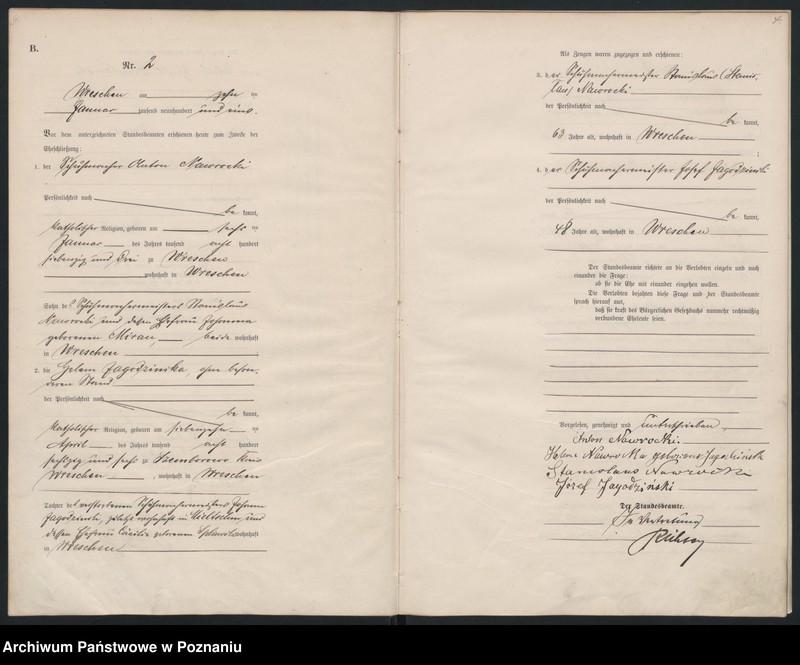 4.
B.
Nr. 2
Wreschen am zehn ten
Januar tausend neunhundert und eins.
Vor dem unterzeichneten Standesbeamten erschienen heute zum Zwecke der
Eheschließung:
1. der Schuhmacher Anton Nawrocki
der Persönlichkeit nach
be kannt,
katholischer Religion, geboren am sechs ten
Januar des Jahres tausend acht hundert
siebenzig und drei zu Wreschen
wohnhaft in Wreschen
Sohn des Schuhmachermeisters Stanislaus
Nawrocki und dessen Ehefrau Johanna
geborenen Miran, beide wohnhaft
in Wreschen
2. die Helena Jagodzinska, ohne beson-
deren Stand
der Persönlichkeit nach
be kannt,
katholischer Religion, geboren am siebenzehn ten
April des Jahres tausend acht hundert
sechszig und sechs zu Szemborowo Kreis
Wreschen, wohnhaft in Wreschen
Tochter des verstorbenen Schuhmachermeisters Johann
Jagodzinski, zuletzt wohnhaft in und
dessen Ehefrau Cäcilie geborenen wohnhaft
in Wreschen
Als Zeugen waren zugezogen und erschienen:
3. der Schuhmachermeister Stanislaus (Stanis-
laus) Nawrocki
der Persönlichkeit nach
be kannt,
63 Jahre alt, wohnhaft in Wreschen
;
4. der Schuhmachermeister Josef Jagodzinski
der Persönlichkeit nach
be kannt,
48 Jahre alt, wohnhaft in Wreschen
Der Standesbeamte richtete an die Verlobten einzeln und nach
einander die Frage:
ob sie die Ehe mit einander eingehen wollen.
Die Verlobten bejahten diese Frage und der Standesbeamte
sprach hierauf aus,
daß sie kraft des Bürgerlichen Gesetzbuchs nunmehr rechtmäßig
verbundene Eheleute seien.
Vorgelesen, genehmigt und unterschrieben
Anton Nawrocki.
Helena Nawrocka geborene Jagodzińska
Stanislaus Nawrocki
Józef Jagodziński
Der Standesbeamte.
In Vertretung
Archiwum Państwowe w Poznaniu